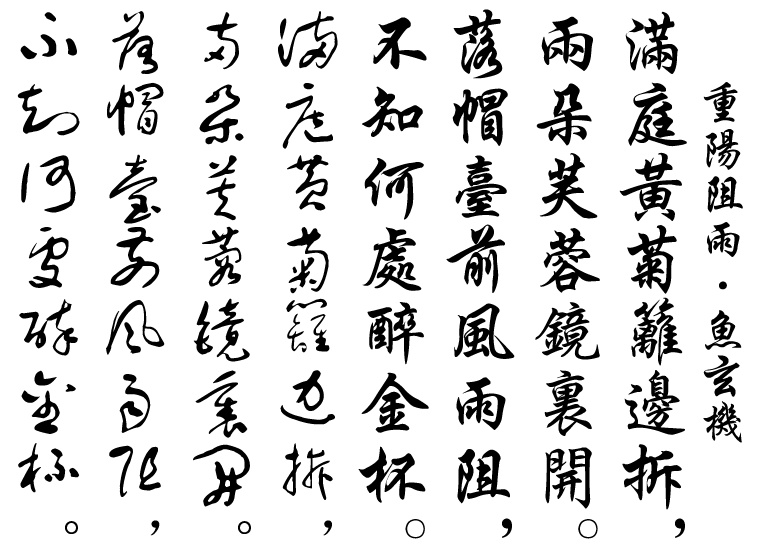 重陽阻雨・魚玄機
滿庭黃菊籬邊拆，
兩朵芙蓉鏡裏開○
落帽臺前風雨阻，
不知何處醉金杯○
滿庭黃菊籬邊拆，
兩朵芙蓉鏡裏開。
落帽臺前風雨阻，
不知何處醉金杯。